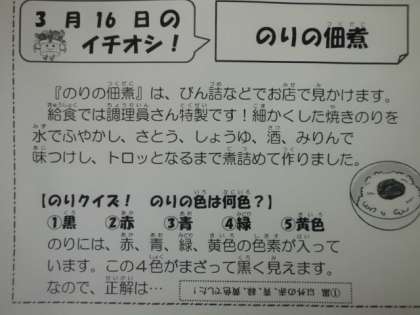 3月16日の
イチオシ!
のりの佃煮
『のりの佃煮』は、びん詰などでお店で見かけます。
給食では調理員さん特製です!細かくした焼きのりを
水でふやかし、さとう、しょうゆ、酒、みりんで
味つけし、トロッとなるまで煮詰めて作りました。
【のりクイズ! のりの色は何色?】
①黒 ②赤 ③青 ④緑 ⑤黄色
のりには、赤、青、緑、黄色の色素が入って
います。この4色がまざって黒く見えます。
なので、正解は…
①黒 以外の赤、青、緑、黄色でした!